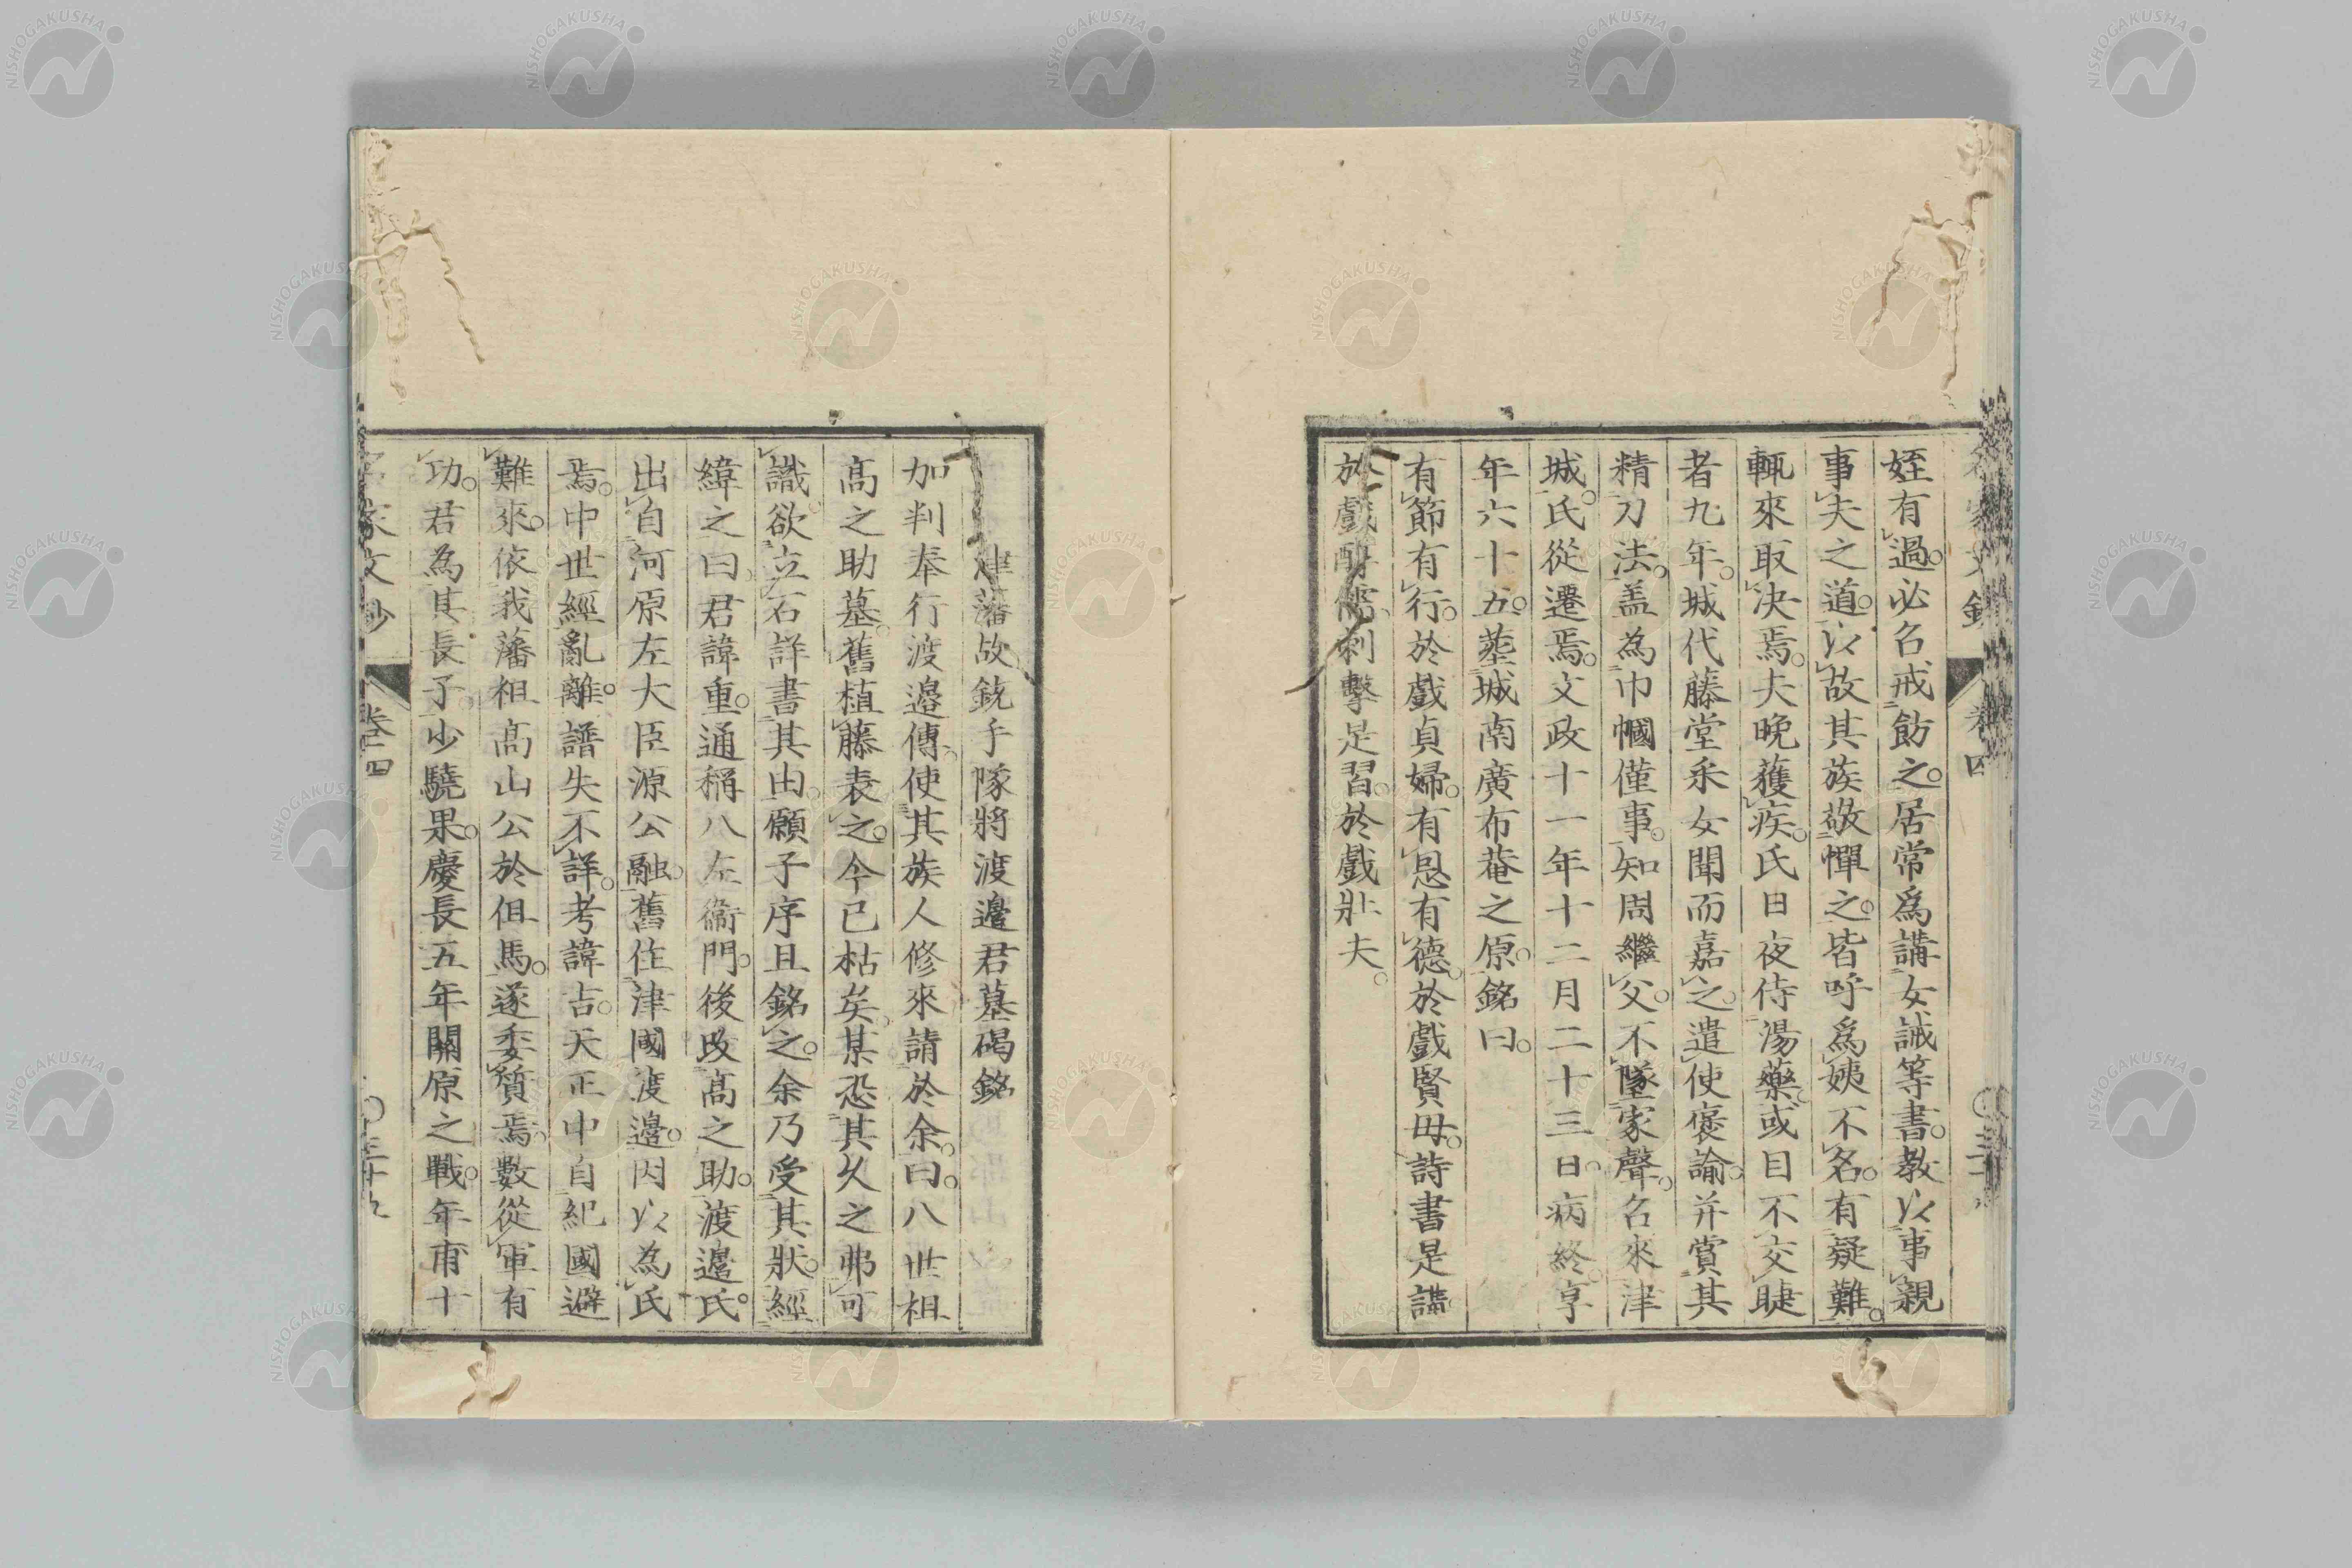 姪有過。必名戒飭之。居常爲講女誡等書。教以事親
事夫之道。以故其族敬憚之。皆呼爲姨不名。有疑難。
輒來取決焉。夫晚獲疾。氏日夜侍湯藥。或目不交睫
者九年。城代藤堂采女聞而嘉之。遣使褒諭。并賞其
精刀法。盖為巾幗僅事。知周繼父。不墜家聲。名來津
城。氏從遷焉。文政十一年十二月二十三日。病終。享
年六十五。葬城南廣布菴之原。銘曰。
有節有行。於戲貞婦。有恩有德。於戲賢母。詩書是講
於戲醇儒。刺擊是習。於戲壯夫。
津藩故銃手隊將渡邉君墓碣銘
加判奉行渡邉傳。使其族人修來請於余。曰。八世祖
高之助墓。舊植藤表之。今已枯矣。某恐其久之弗可
識。欲立石詳書其由。願子序且銘之。余乃受其狀。經
緯之曰。君諱重。通稱八左衞門。後改高之助。渡邉氏。
出自河原左大臣源公融。舊住津國渡邉。因以為氏
焉。中世經亂離。譜失不詳。考諱吉。天正中自紀國避
難來。依我藩祖高山公於但馬。遂委質焉。數從軍有
功。君為其長子。少驍果。慶長五年關原之戰。年甫十
名家文鈔 卷四